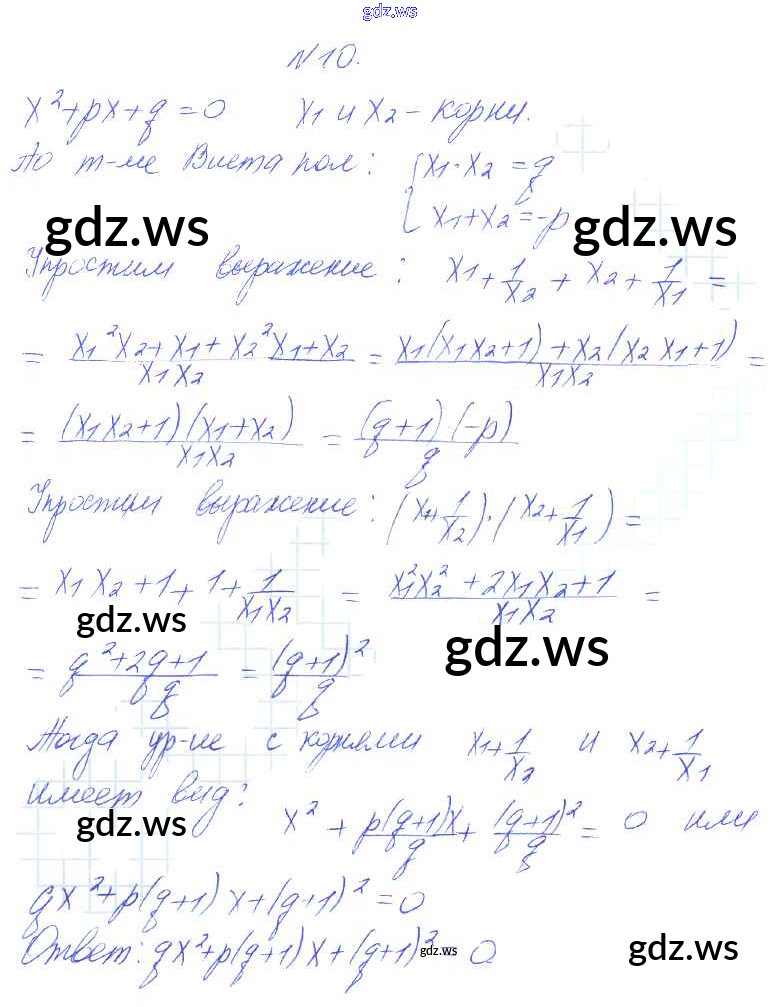 gdz.ws
N10.
x²+px+q=0 x₁ и x₂ – корни.
По т-ме Виета пол: { x₁·x₂ = q
x₁+x₂=-p
gdz.ws gdz.ws
Упростим выражение: x₁+1/x₂ + x₂+1/x₁ =
= (x₁²x₂+x₁+x₂²x₁+x₂)/(x₁x₂) = (x₁(x₁x₂+1)+x₂(x₂x₁+1))/(x₁x₂) =
= ((x₁x₂+1)(x₁+x₂))/(x₁x₂) = ((q+1)·(-p))/q
Упростим выражение: (x₁+1/x₂)·(x₂+1/x₁) =
= x₁x₂+1+1+1/(x₁x₂) = (x₁²x₂²+2x₁x₂+1)/(x₁x₂) =
gdz.ws gdz.ws
= (q²+2q+1)/q = (q+1)²/q
Тогда ур-ие с корнями x₁+1/x₂ и x₂+1/x₁
имеет вид:
gdz.ws
x² + p(q+1)x/q + (q+1)²/q = 0 или
qx²+p(q+1)x+(q+1)²=0
Ответ: qx²+p(q+1)x+(q+1)²=0
gdz.ws gdz.ws